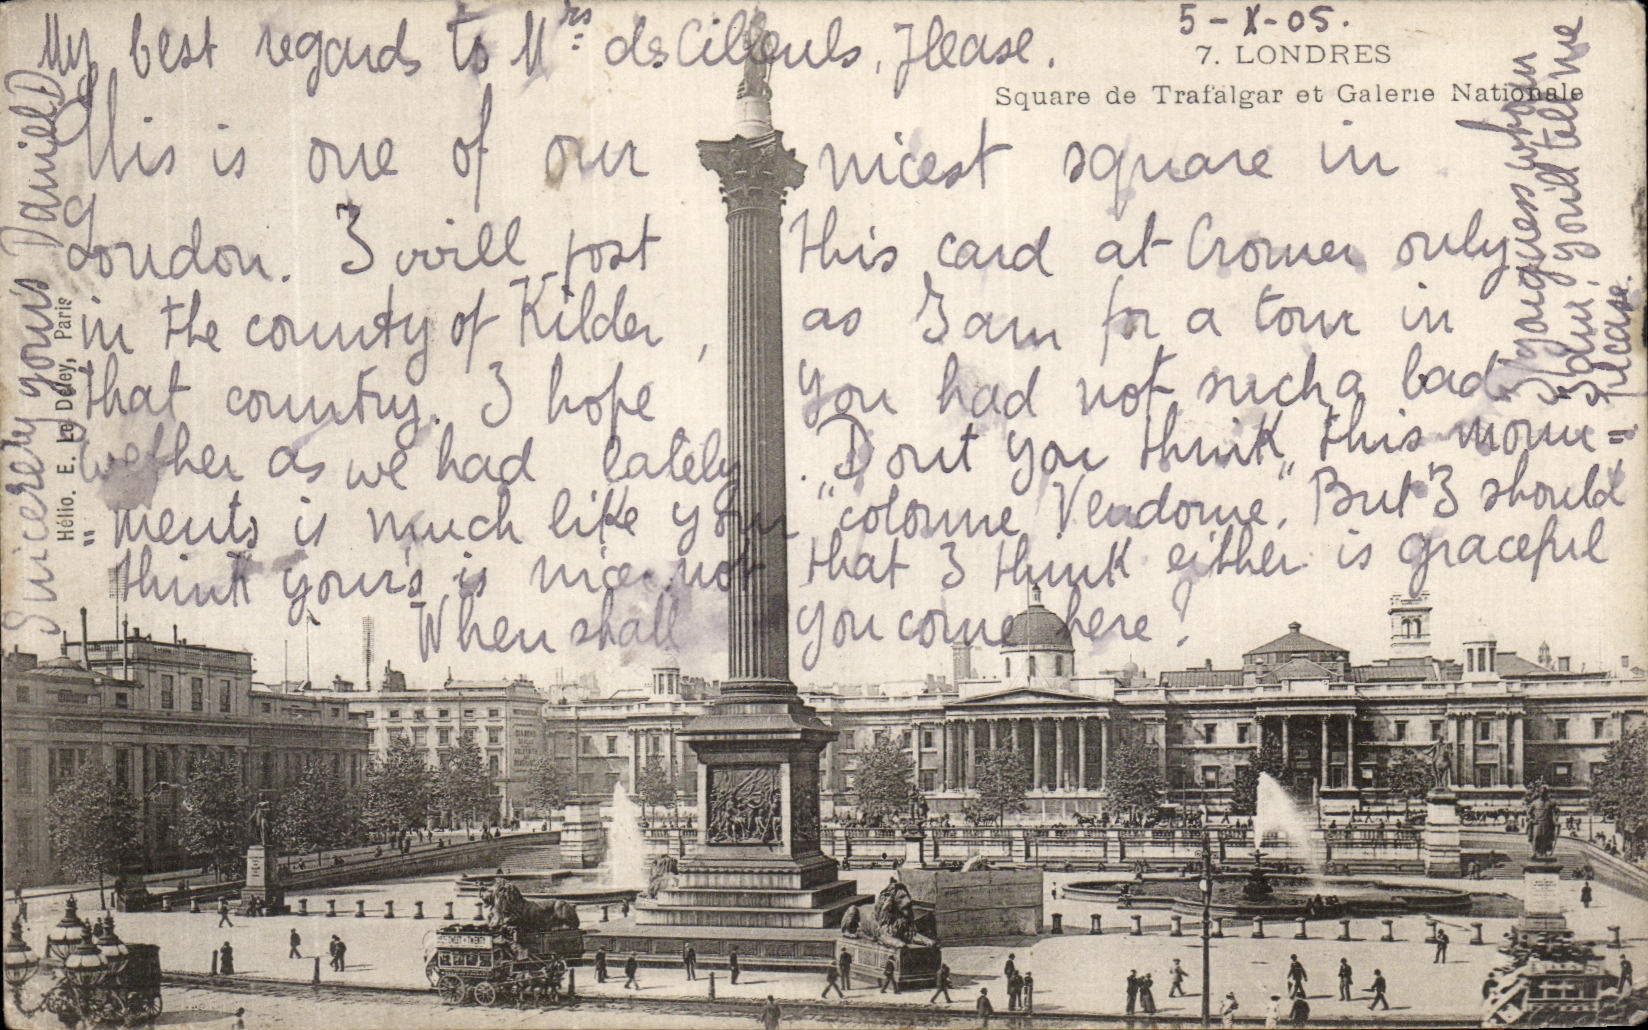 5-X-05.
My best regards to Mrs des Cilleuls, Please.
7. LONDRES
Square de Trafalgar et Galerie Nationale
This is one of our nicest square in
London. I will post this card at Cromer only
in the county of Kilder, as I am for a tour in
that country. I hope you had not such a bad
wether as we had lately. Dont you think this monu=
"ments is much like your "colonne Vendome". But I should
think your's is nice not that I think either is graceful
When shall you come here?
I guess whom
I am, you'll tell me
please.
Sincerely yours Daniel D
Hélio. E. Le Deley, Paris